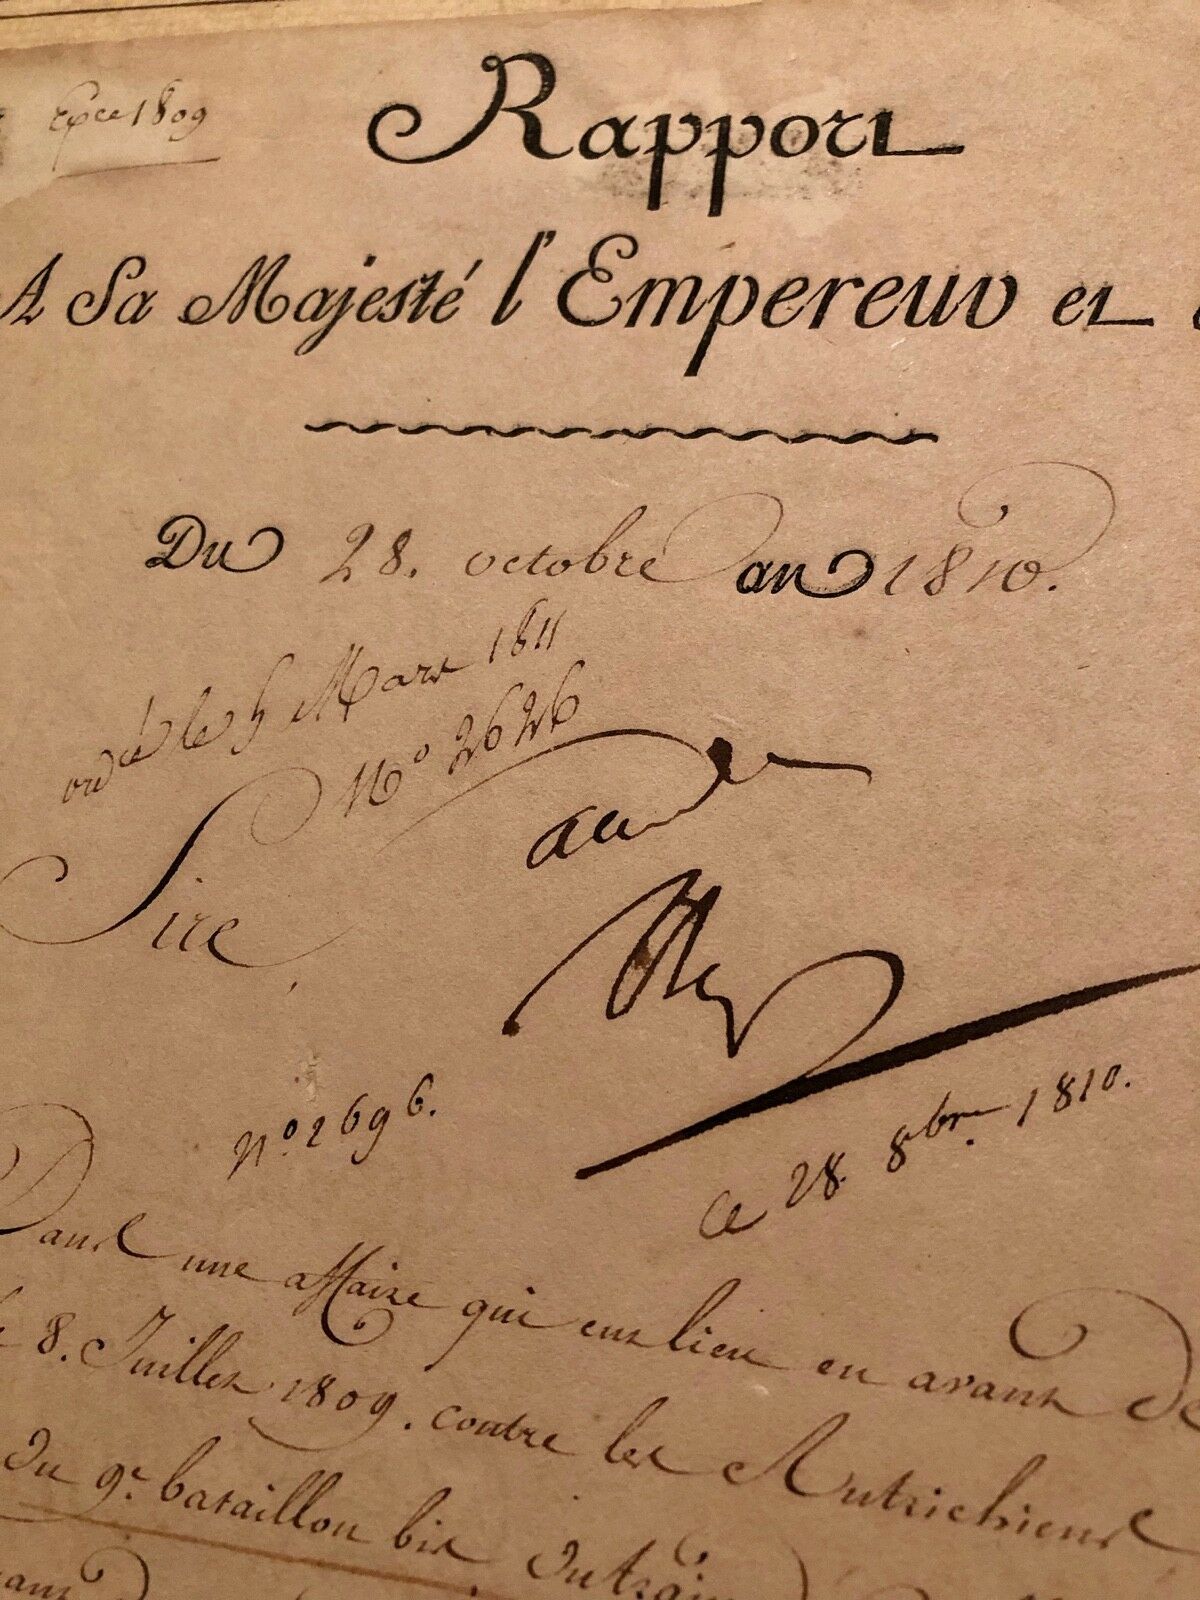 Exce 1809
Rapport
A Sa Majesté l'Empereur et
Du 28. octobre an 1810.
ordcé le 5 Mars 1811
N° 2626
Sire
n° 2696.
ce 28 8bre. 1810.
Dans une affaire qui eut lieu en avant de
8. Juillet 1809. contre les Autrichiens
du 9e. bataillon bis du train